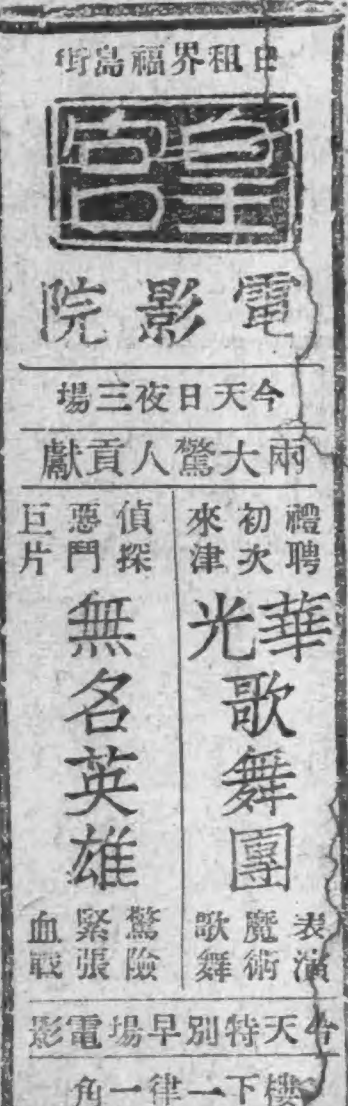 日租界福島街
皇宮
電影院
今天日夜三場
兩大驚人貢獻
禮聘
初次
來津
華光
歌舞團
表演
魔術
歌舞
偵探
惡鬥
巨片
無名英雄
驚險
緊張
血戰
今天特別早場電影
樓下一律一角